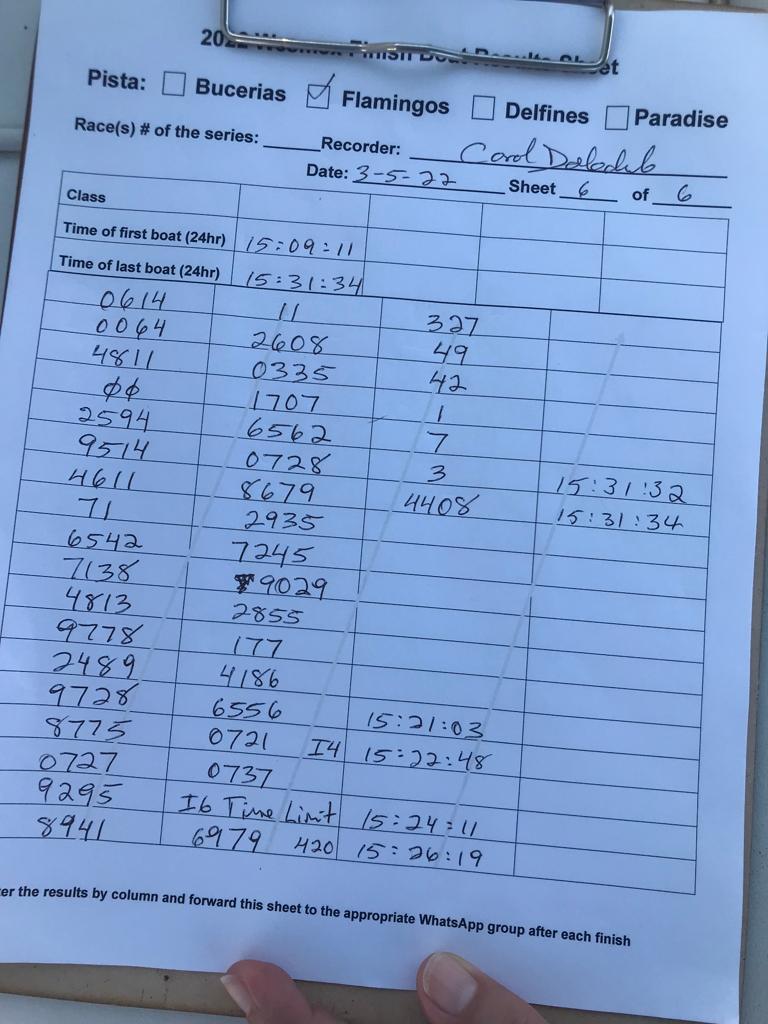 2022 Wesmex Finish Boat Results Sheet
Pista: Bucerias Flamingos Delfines Paradise
Race(s) # of the series: Recorder: Carol
Date: 3-5-22 Sheet 6 of 6
Class
Time of first boat (24hr) 15:09:11
Time of last boat (24hr) 15:31:34
0614 11 327
0064 2608 49
4811 0335 42
φφ 1707 1
2594 6562 7
9514 0728 3 15:31:32
4611 8679 4408 15:31:34
71 2935
6542 7245
7138 9029
4813 2855
9778 177
2489 4186
9728 6556 15:21:03
8775 0721 I4 15:22:48
0727 0737
9295 I6 Time Limit 15:24:11
8941 6979 420 15:26:19
er the results by column and forward this sheet to the appropriate WhatsApp group after each finish